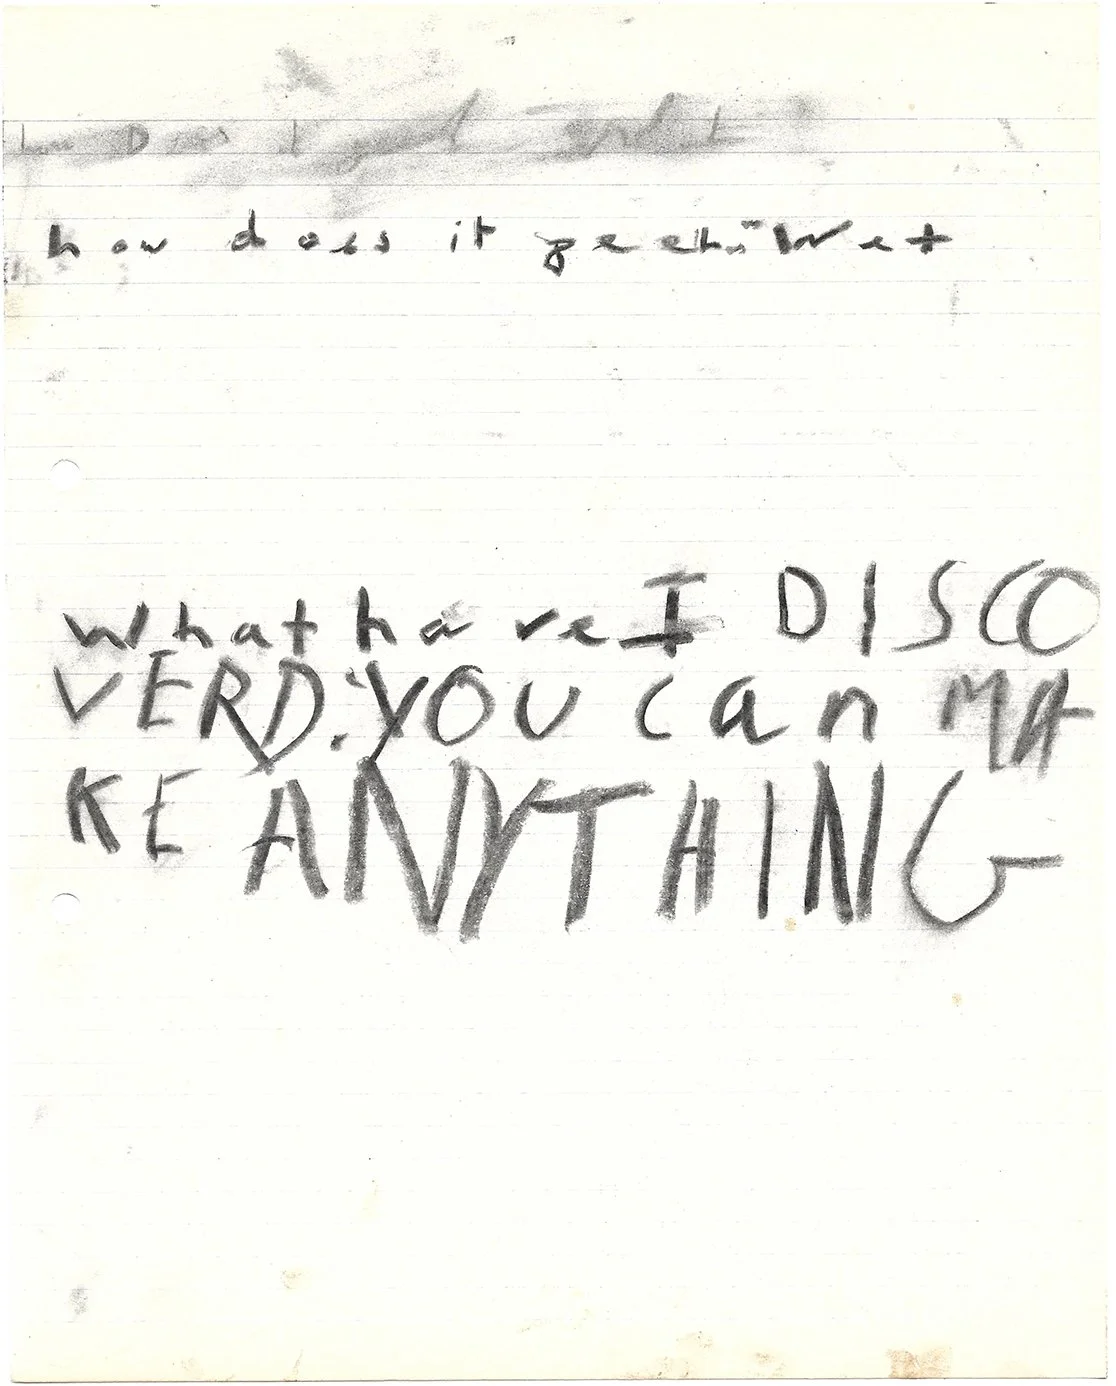 how does it
What have I DISCO
VERD. YOU can MA
KE ANYTHING